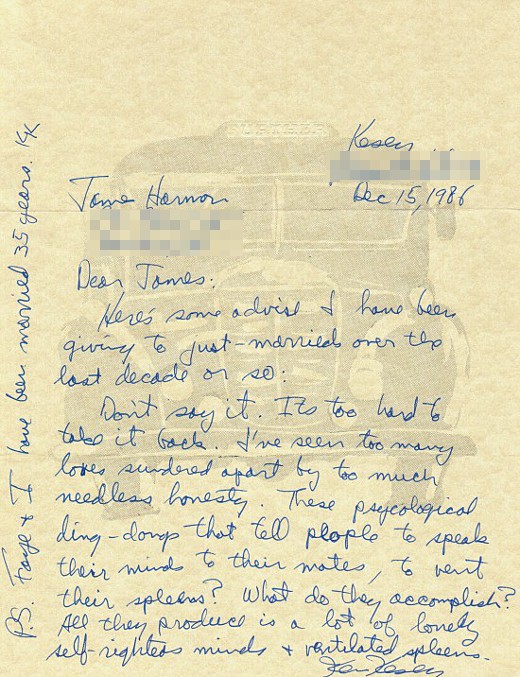 FURTHER
Kesey
Dec 15, 1986
James Harmon
Dear James:
Here's some advise I have been
giving to just-marrieds over the
last decade or so:
Don't say it. Its too hard to
take it back. I've seen too many
loves sundered apart by too much
needless honesty. These psycological
ding-dongs that tell people to speak
their minds to their mates, to vent
their spleens? What do they accomplish?
All they produce is a lot of lonely
self-righteos minds + ventilated spleens.
Ken Kesey
P.S. Faye + I have been married 35 years. KK